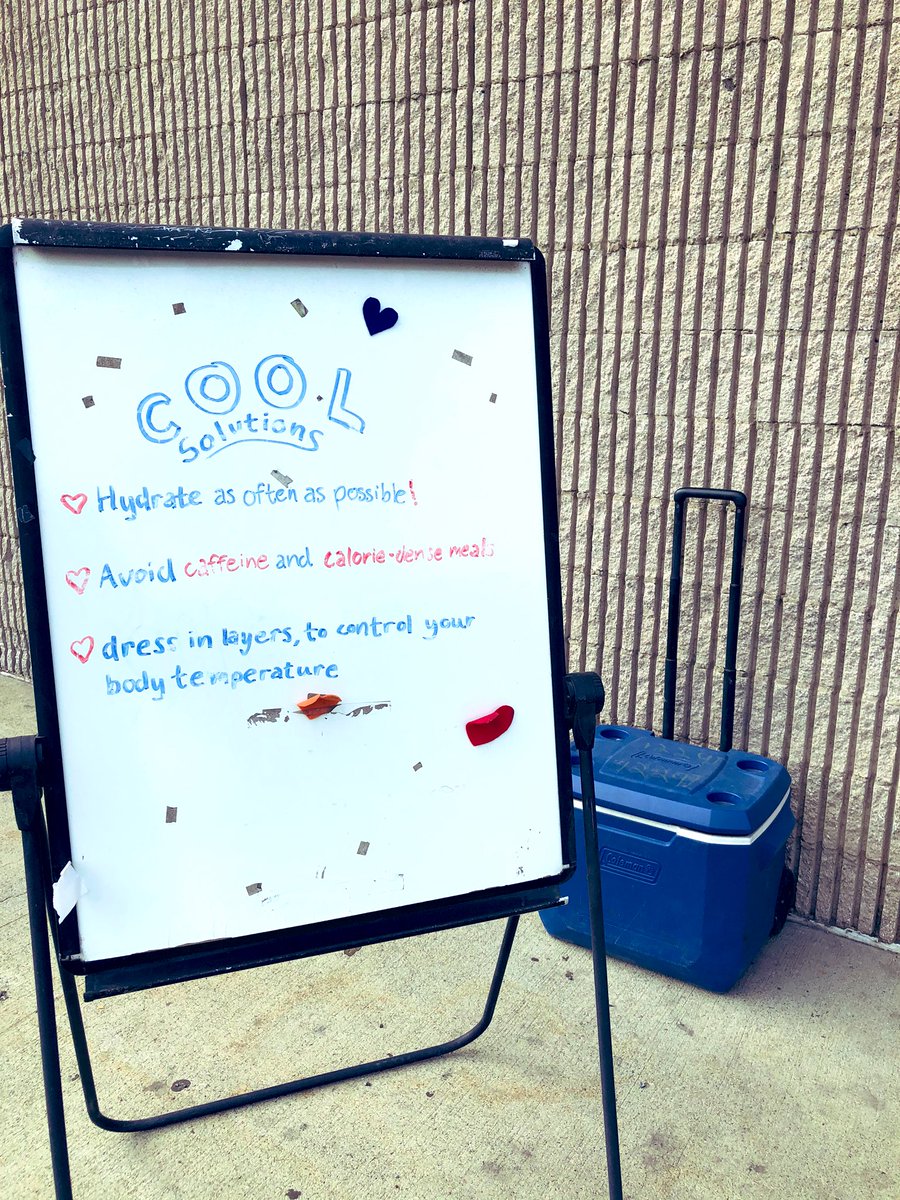 COOL
Solutions
Hydrate as often as possible!
Avoid caffeine and calorie-dense meals
dress in layers, to control your
body temperature
Coleman